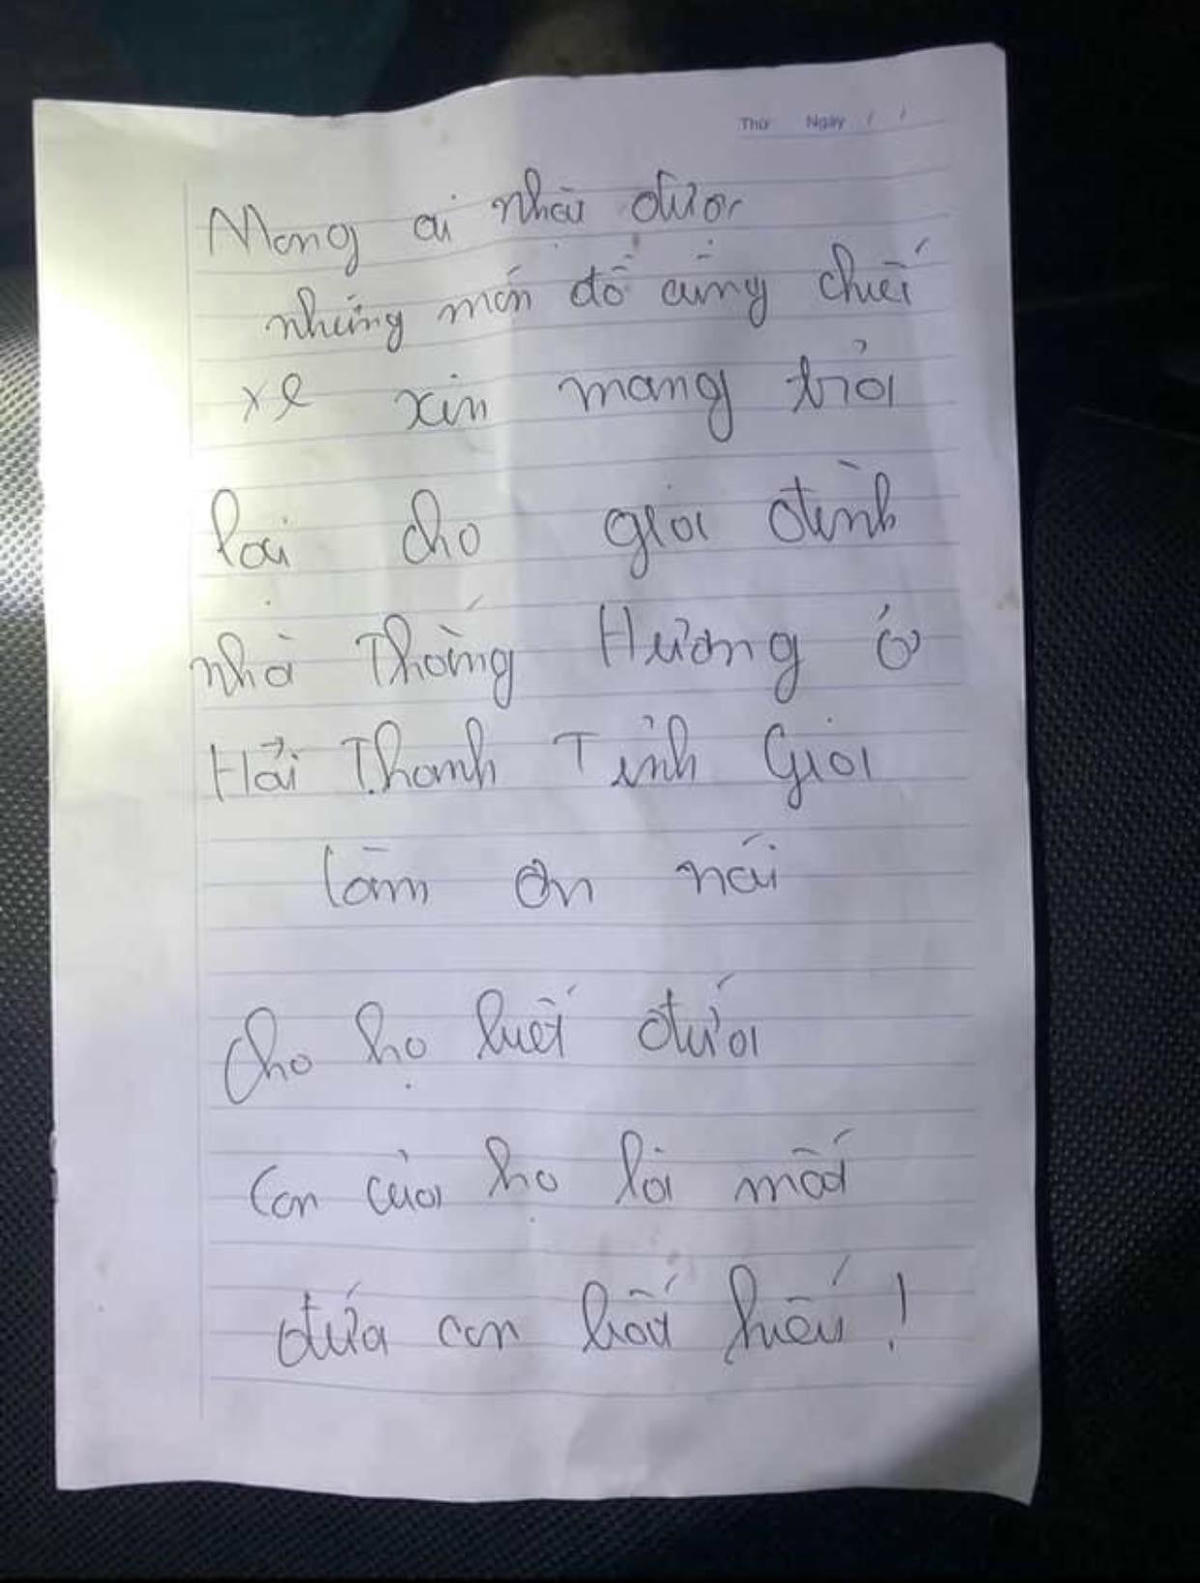 Thứ Ngày / /
Mong ai nhặt được
những món đồ cùng chiếc
xe xin mang trả
lại cho gia đình
nhà Thắng Hương ở
Hải Thanh Tĩnh Gia
làm ơn nói
cho họ biết dưới
con của họ là một
đứa con bất hiếu !